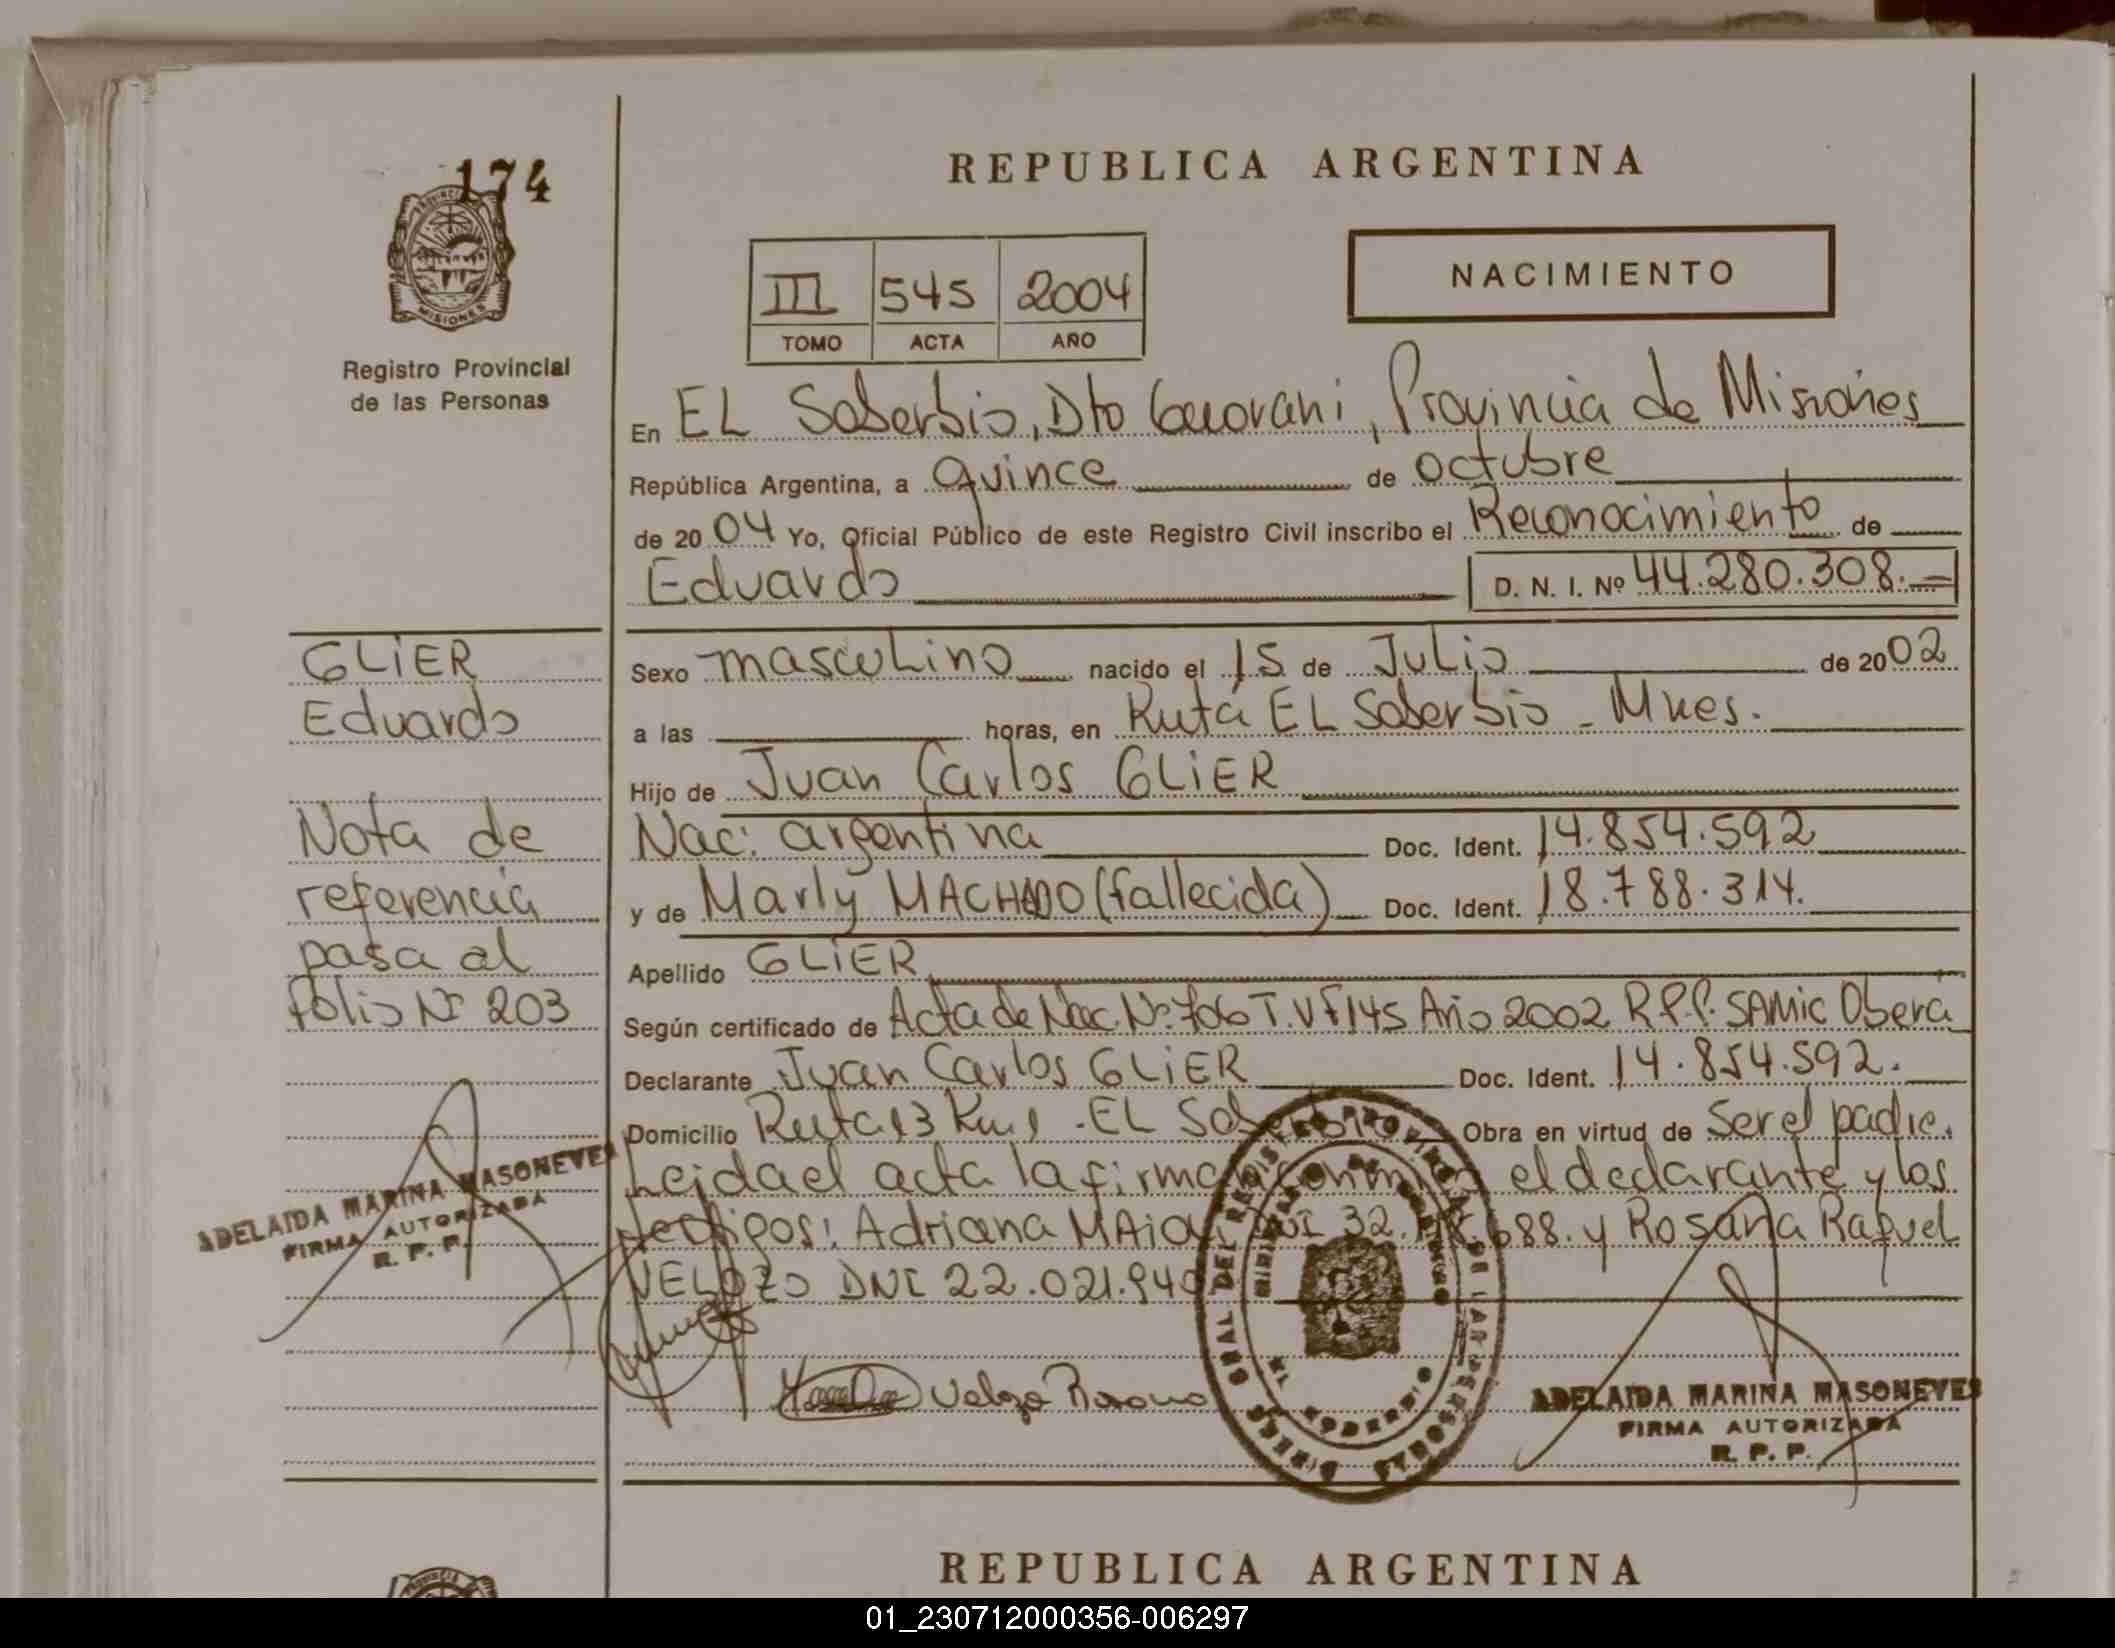 174
PROVINCIA
MISIONES
Registro Provincial
de las Personas
REPUBLICA ARGENTINA
III 545 2004
TOMO ACTA AÑO
NACIMIENTO
En EL Soberbio, Dto Guarani, Provincia de Misiones
República Argentina, a quince de octubre
de 2004 Yo, Oficial Público de este Registro Civil inscribo el Reconocimiento de
Eduardo D. N. I. Nº 44.280.308.-
Sexo masculino nacido el 15 de Julio de 2002
a las horas, en Ruta EL Soberbio - Mnes.
Hijo de Juan Carlos GLiER
Nac: argentina Doc. Ident. 14.854.592
y de Marly MACHADO (fallecida) Doc. Ident. 18.788.314.
Apellido GLiER
Según certificado de Acta de Nac. Nº 706 T. V F 145 Año 2002 R.P.P. SAMic Oberá
Declarante Juan Carlos GLiER Doc. Ident. 14.854.592.
Domicilio Ruta 13 Km 1 - EL Soberbio Obra en virtud de Ser el padre.
Leida el acta la firman conmigo el declarante y los
testigos: Adriana MAia DNI 32. 688. y Rosana Raquel
VELOZO DNI 22.021.940
Velozo Rosana
ADELAIDA MARINA MASONEVES
FIRMA AUTORIZADA
R. P. P.
GLiER
Eduardo
Nota de
referencia
pasa al
folio Nº 203
ADELAIDA MARINA MASONEVES
FIRMA AUTORIZADA
R. P. P.
REPUBLICA ARGENTINA
01_230712000356-006297